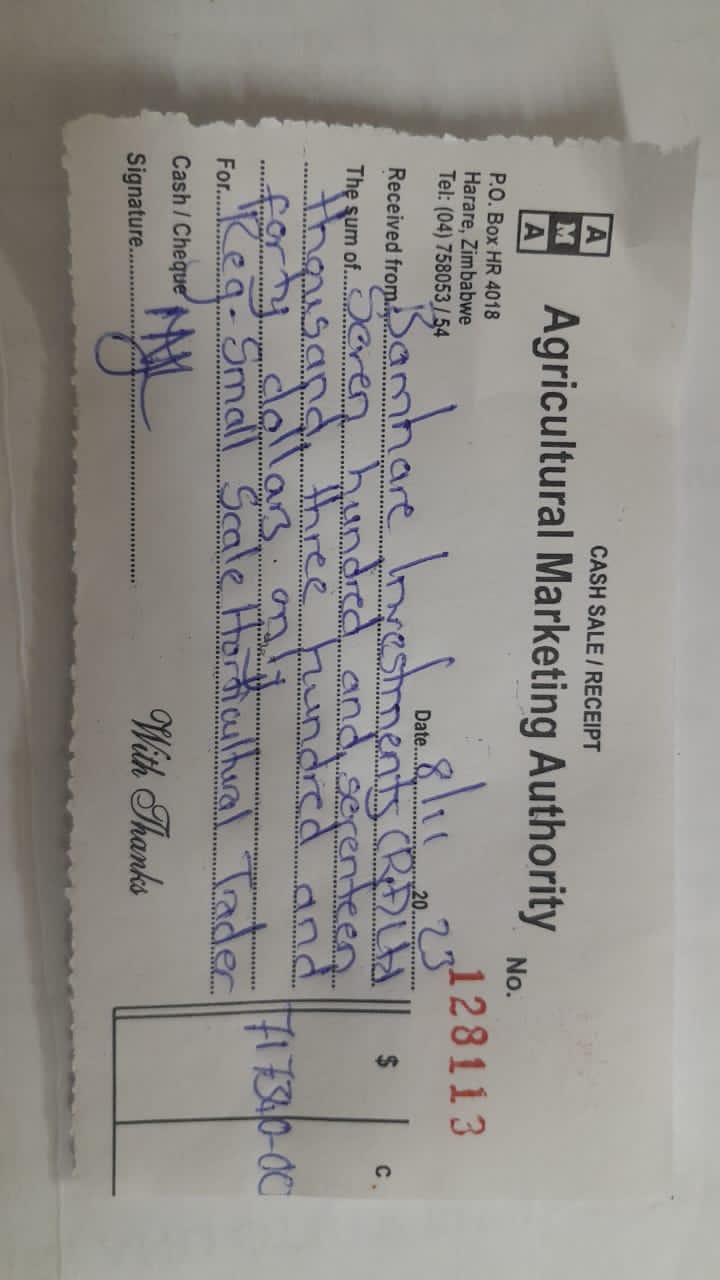 CASH SALE / RECEIPT
A
M
A
Agricultural Marketing Authority
No.
128113
P.O. Box HR 4018
Harare, Zimbabwe
Tel: (04) 758053 / 54
Date 8/11 20 23
Received from Bamhare Investments (Pvt) Ltd
The sum of Seven hundred and seventeen
thousand three hundred and
forty dollars only
For Reg - Small Scale Horticultural Trader
$ c.
717340-00
Cash / Cheque
Signature
With Thanks